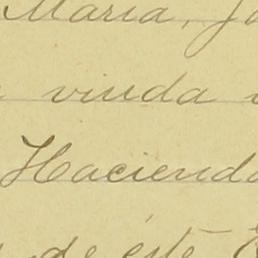 Maria, J
viuda
Hacienda
de éste